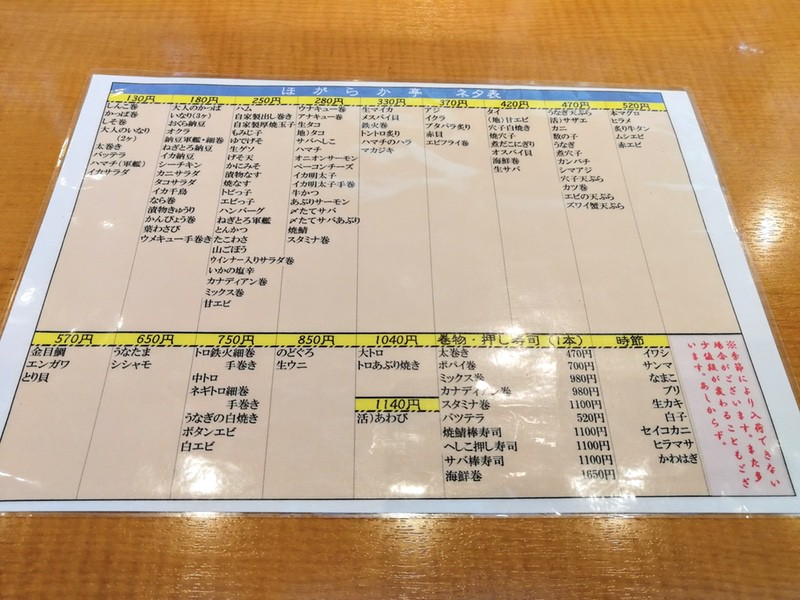 ほがらか亭　ネタ表
130円
しんこ巻
かっぱ巻
しそ巻
大人のいなり
(2ヶ)
太巻き
バッテラ
ハマチ(軍艦)
イカサラダ
180円
大人のかっぱ
いなり(3ヶ)
おくら納豆
オクラ
納豆軍艦・細巻
ねぎとろ納豆
イカ納豆
シーチキン
カニサラダ
タコサラダ
イカ千鳥
なら巻
漬物きゅうり
かんぴょう巻
葉わさび
ウメキュー手巻き
250円
ハム
自家製出し巻き
自家製厚焼玉子
もみじ子
ゆでげそ
生ゲソ
げそ天
かにみそ
漬物なす
焼なす
トビっ子
エビっ子
ハンバーグ
ねぎとろ軍艦
とんかつ
たこわさ
山ごぼう
ウインナー入りサラダ巻
いかの塩辛
カナディアン巻
ミックス巻
甘エビ
280円
ウナキュー巻
アナキュー巻
生タコ
地)タコ
サバへしこ
ハマチ
オニオンサーモン
ベーコンチーズ
イカ明太子
イカ明太子手巻
牛かつ
あぶりサーモン
〆たてサバ
〆たてサバあぶり
焼鯖
スタミナ巻
330円
生マイカ
メスバイ貝
鉄火巻
トントロ炙り
ハマチのハラ
マカジキ
370円
アジ
イクラ
ブタバラ炙り
赤貝
エビフライ巻
420円
タイ
(地)甘エビ
穴子白焼き
焼穴子
煮だこにぎり
オスバイ貝
海鮮巻
生サバ
470円
うなぎ天ぷら
活)サザエ
カニ
数の子
うなぎ
煮穴子
カンパチ
シマアジ
穴子天ぷら
カツ巻
エビの天ぷら
ズワイ蟹天ぷら
520円
本マグロ
ヒラメ
炙り牛タン
ムシエビ
赤エビ
570円
金目鯛
エンガワ
とり貝
650円
うなたま
シシャモ
750円
トロ鉄火細巻
手巻き
中トロ
ネギトロ細巻
手巻き
うなぎの白焼き
ボタンエビ
白エビ
850円
のどぐろ
生ウニ
1040円
大トロ
トロあぶり焼き
1140円
活)あわび
巻物・押し寿司(1本)
太巻き 470円
ポパイ巻 700円
ミックス巻 980円
カナディアン巻 980円
スタミナ巻 1100円
バッテラ 520円
焼鯖棒寿司 1100円
へしこ押し寿司 1100円
サバ棒寿司 1100円
海鮮巻 1650円
時節
イワシ
サンマ
なまこ
ブリ
生カキ
白子
セイコカニ
ヒラマサ
かわはぎ
※季節により入荷できない
場合がございます。また多
少値段が変わることもござ
います。あしからず。